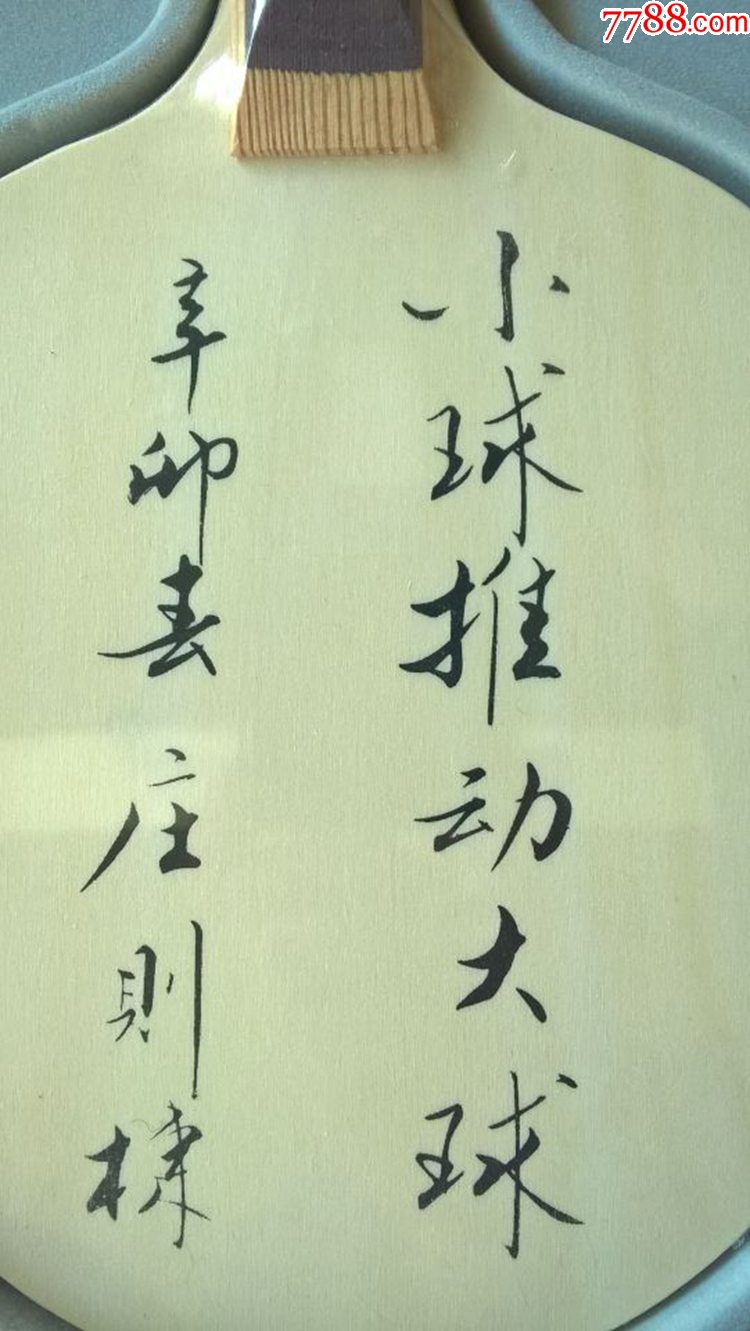 7788.com
小球推动大球
辛卯春 庄则棟